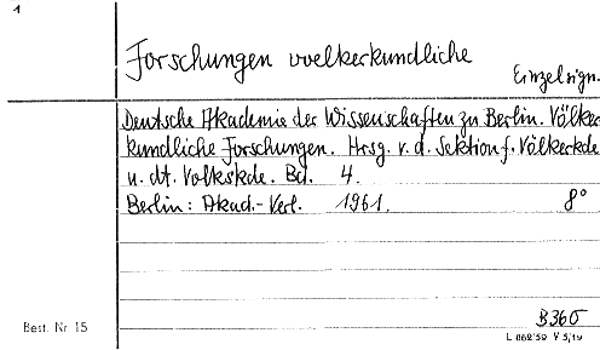 1
Forschungen voelkerkundliche
Einzelsign.
Deutsche Akademie der Wissenschaften zu Berlin. Völker
kundliche Forschungen. Hrsg. v. d. Sektion f. Völkerkde
u. dt. Volkskde. Bd. 4.
Berlin: Akad.-Verl. 1961. 8°
B360
Best. Nr. 15 L 862'59 V 5/19